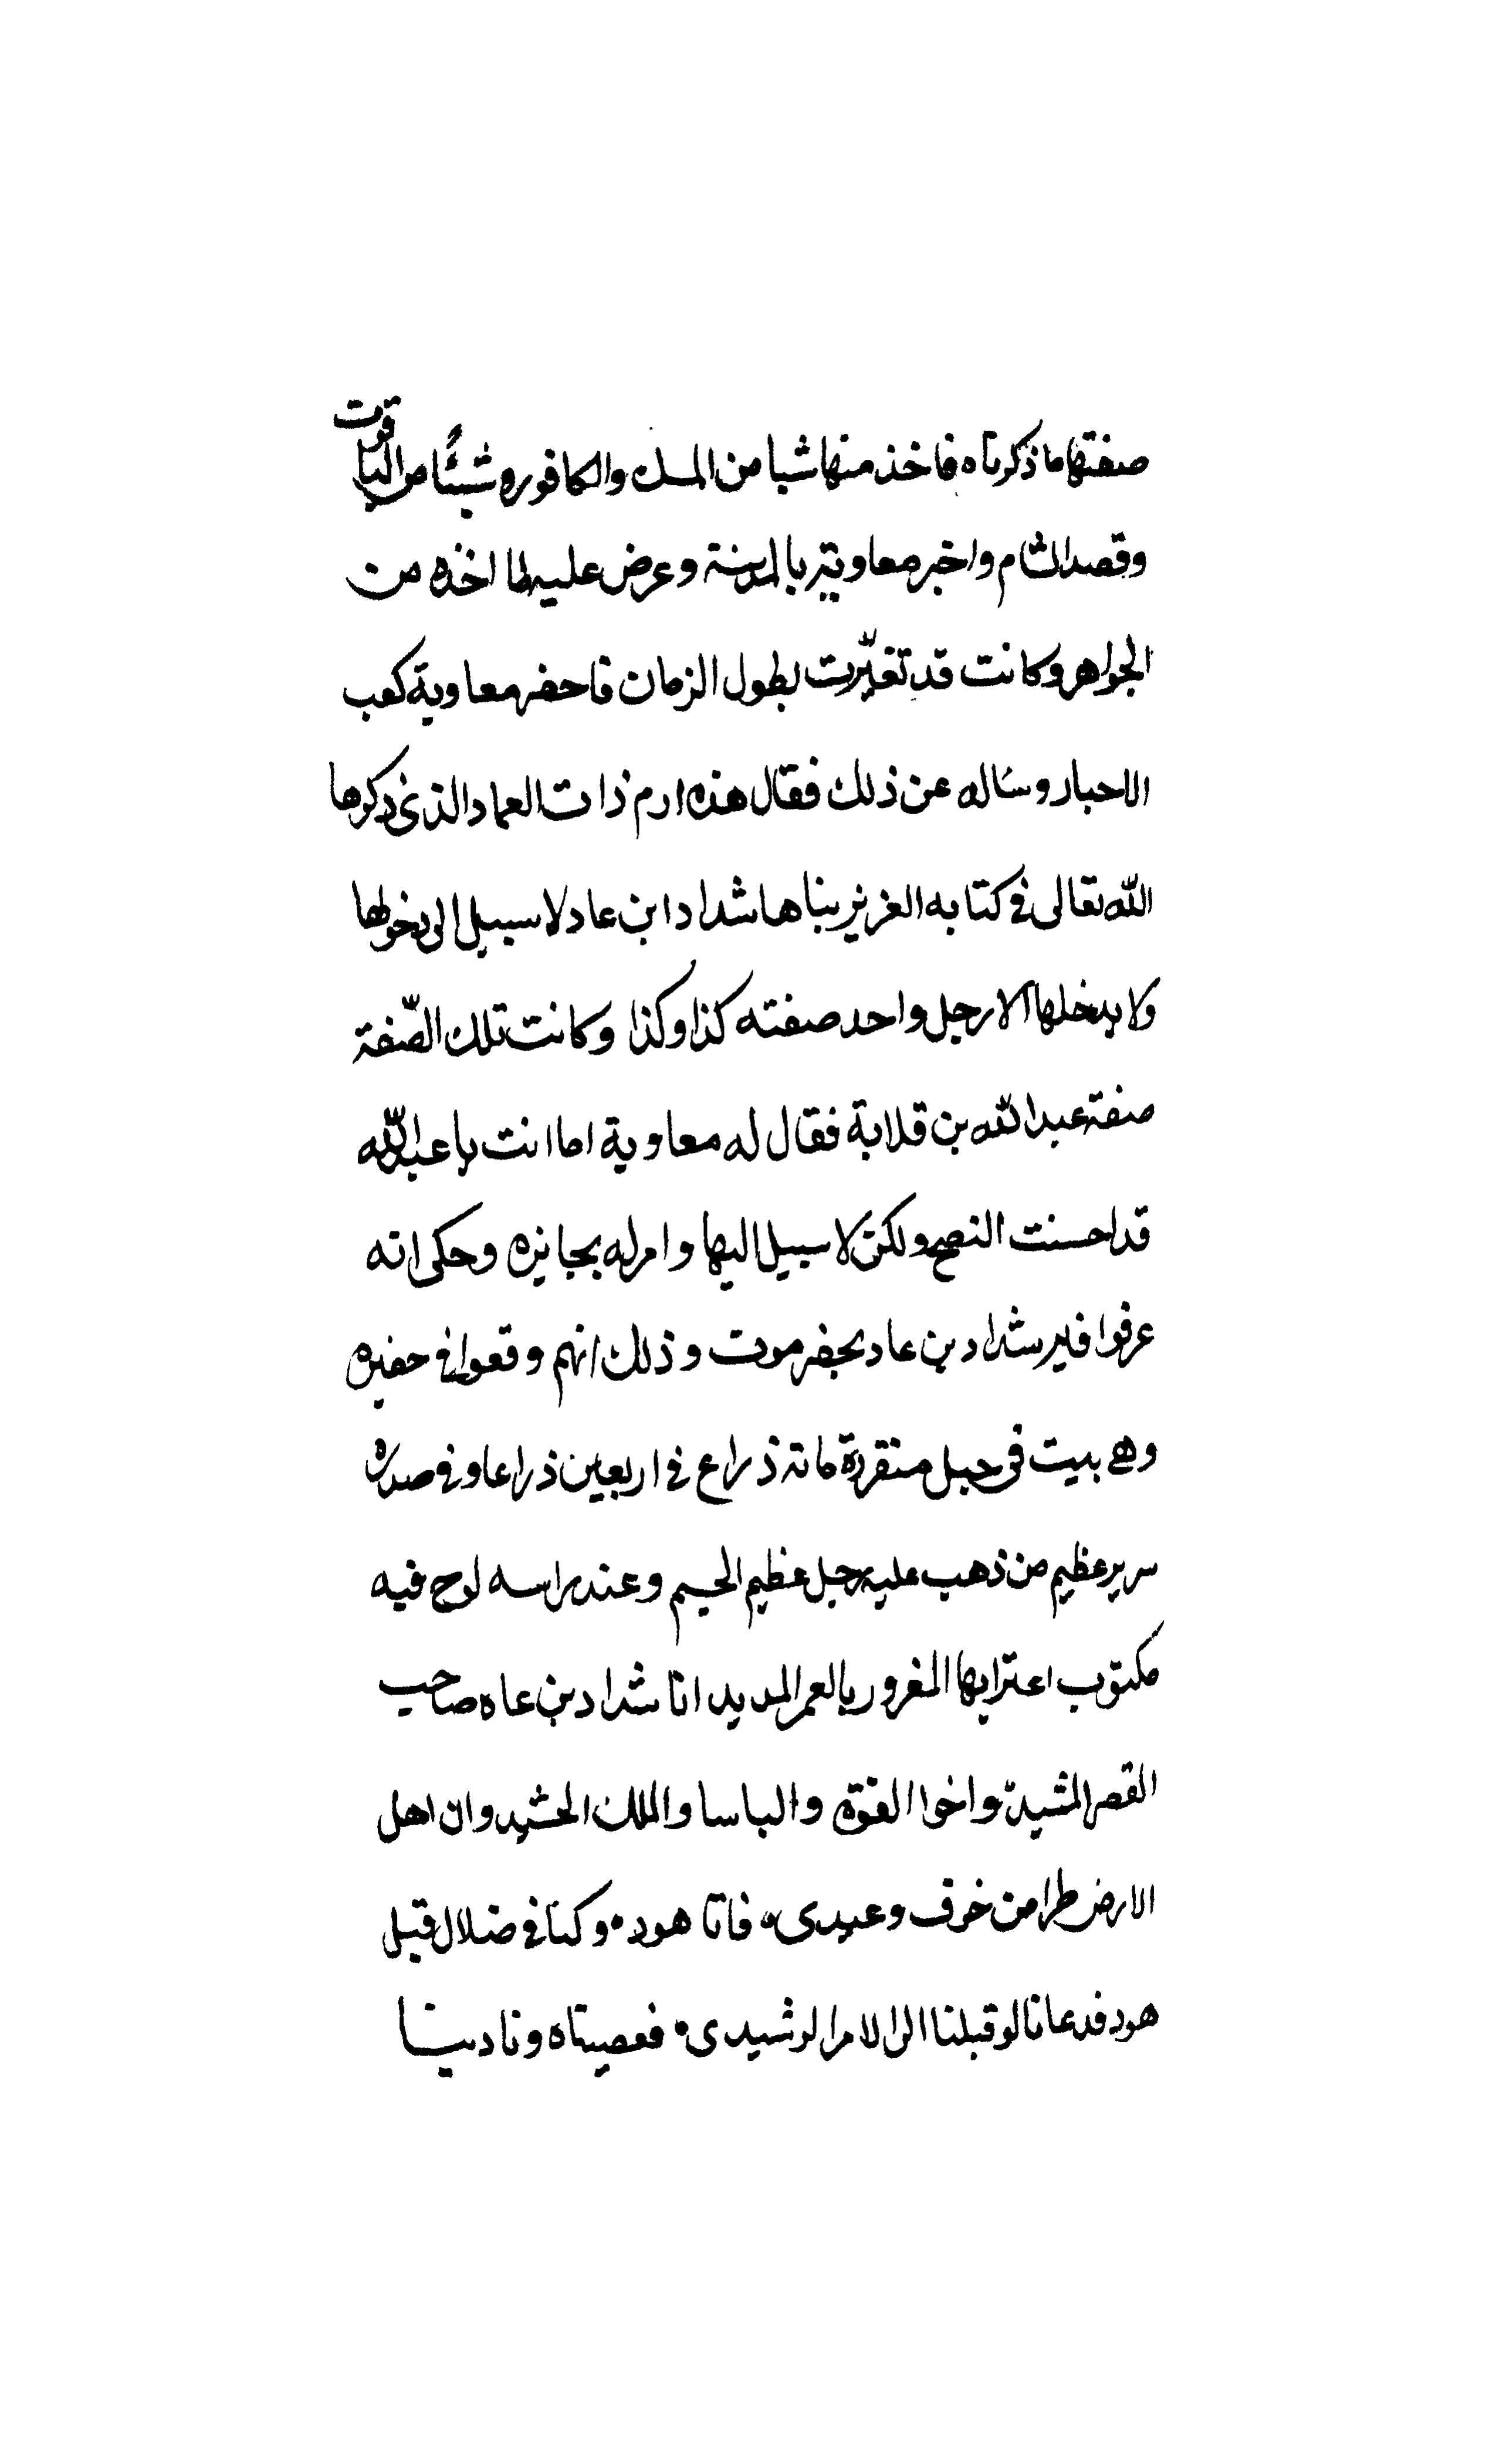 صفتها ما ذكرناه فاخذ منها شيا من المسك والكافور وشيئًا من الياقوت
وقصد الشام واخبر معاوية بالمدينة وعرض عليه ما اخذه من
الجواهر وكانت قد تغيّرت بطول الزمان فاحضر معاوية كعب
الاحبار وساله عن ذلك فقال هذه ارم ذات العماد الذى ذكرها
الله تعالى فى كتابه العزيز بناها شداد ابن عاد لا سبيل الى دخولها
ولا يدخلها الا رجل واحد صفته كذا وكذا وكانت تلك الصّفة
صفة عبد الله بن قلابة فقال له معاوية اما انت يا عبد الله
قد احسنت النصح ولكن لا سبيل اليها وامر له بجايزه وحكى انه
عرفوا قبر شداد بن عاد بحضرموت وذلك انهم وقعوا فى حفيره
وهى بيت فى جبل منقردة ماته ذراع فى اربعين ذراعا وفى صدره
سرير عظيم من ذهب عليه رجل عظيم الجسم وعند راسه لوح فيه
مكتوب اعتبر ايها المغرور بالعمر المديد انا شداد بن عاد صاحب
القصر المشيد واخوا القوة والباسا والملك الحشيد وان اهل
الارض طرا من خوف وعيدى فاتا هود وكنا فى ضلال قبل
هود فدعانا لو قبلنا الى الامر الرشيدى فعصيناه ونادينا